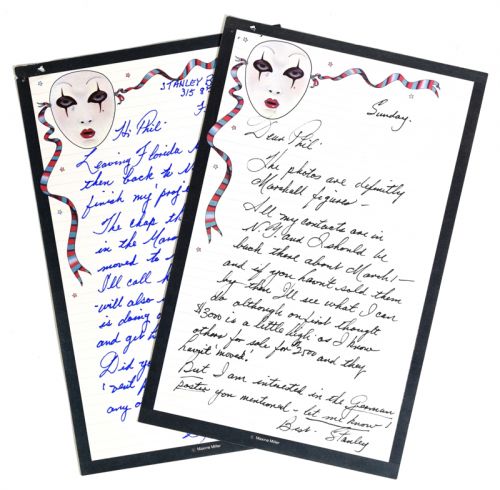 STANLEY B
315 8
Hi Phil-
Leaving Florida
then back to
finish my
The chap
in the
moved to
I'll call
-will also
is doing
and get
Did you
any
Sunday.
Dear Phil-
The photos are definitly
Marshell figures-
All my contacts are in
N.Y. and I should be
back there about March!-
and if you havn't sold them
by then I'll see what I can
do although on first thought
$3000 is a little high as I know
others for sale for $2500 and they
havn't moved!
But I am intrested in the German
poster you mentioned - let me know!
Best- Stanley
© Maxine Miller
© Maxine Miller